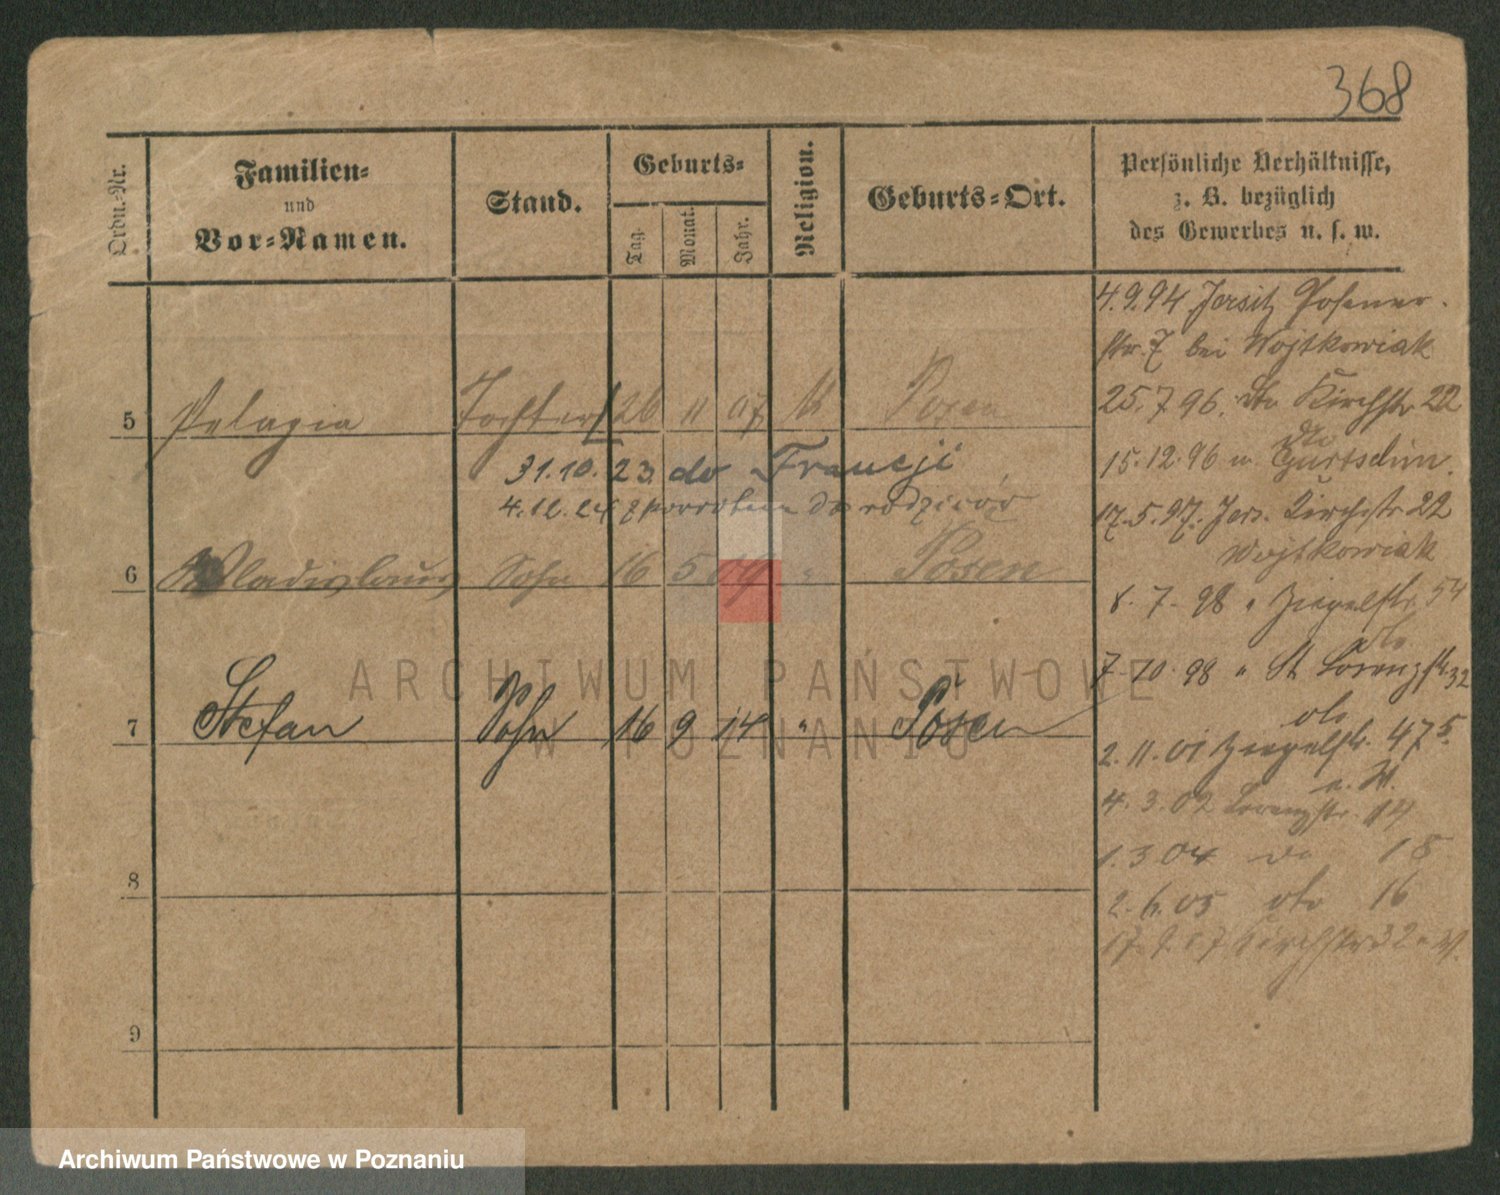 368
Ordn.-Nr.
Familien-
und
Vor-Namen.
Stand.
Geburts-
Tag.
Monat.
Jahr.
Religion.
Geburts-Ort.
Persönliche Verhältnisse,
z. B. bezüglich
des Gewerbes u. s. w.
5 Pelagia Tochter 26 11 07 k Posen
31.10.23 do Francji
4.12.24 z powrotem do rodziców
6 Wladislaus Sohn 16 5 09 " Posen
7 Stefan Sohn 16 9 14 " Posen
8
9
4.9.94 Jersitz Posener-
str. 7 bei Wojtkowiak
25.7.96. dto Kirchstr 22
dto
15.12.96 n Gurtschin.
17.5.97. Jers. Kirchstr 22
Wojtkowiak
8.7.98 " Ziegelstr. 54
dto
7.10.98 " St Lorenzstr. 32
dto
2.11.01 Ziegelstr. 47
4.3.02 Lorenzstr. 14
1.3.04 do 18
2.6.05 dto 16
Kirchstr 32
ARCHIWUM PAŃSTWOWE
W POZNANIU
Archiwum Państwowe w Poznaniu